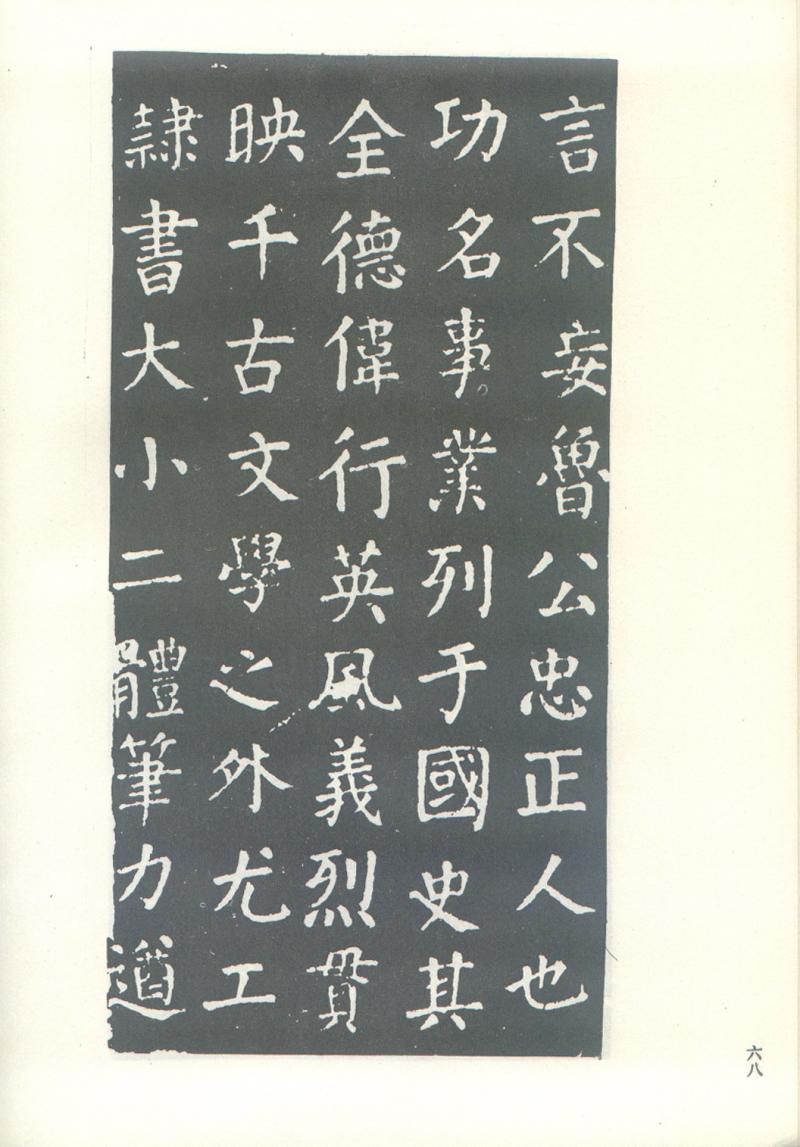 言不妄魯公忠正人也
功名事業列于國史其
全德偉行英風義烈貫
映千古文學之外尤工
隷書大小二體筆力遒
六八